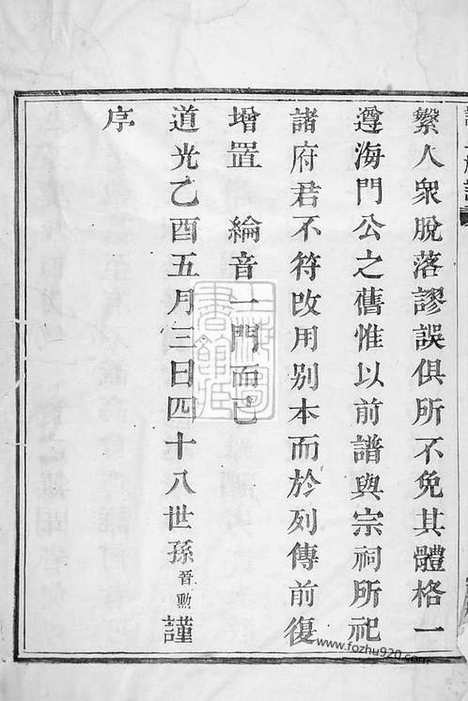 繁人衆脫落謬誤俱所不免其體格一
遵海門公之舊惟以前譜與宗祠所祀
諸府君不符改用别本而於列傳前復
增置　綸音一門而已
道光乙酉五月三日四十八世孫晉勲謹
序
www.fozhu920.com